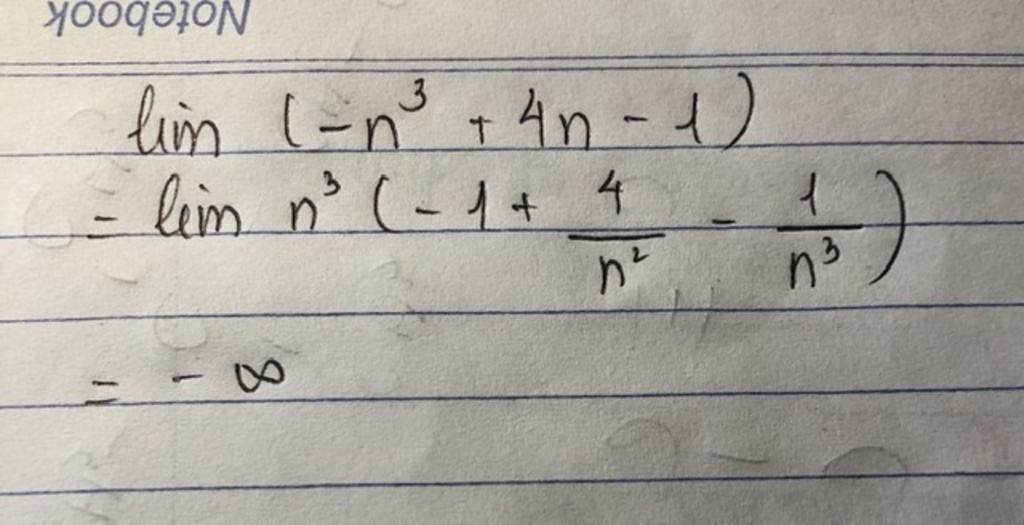 Notebook
lim (-n³ + 4n - 1)
= lim n³ (-1 + 4/n² - 1/n³)
= - ∞